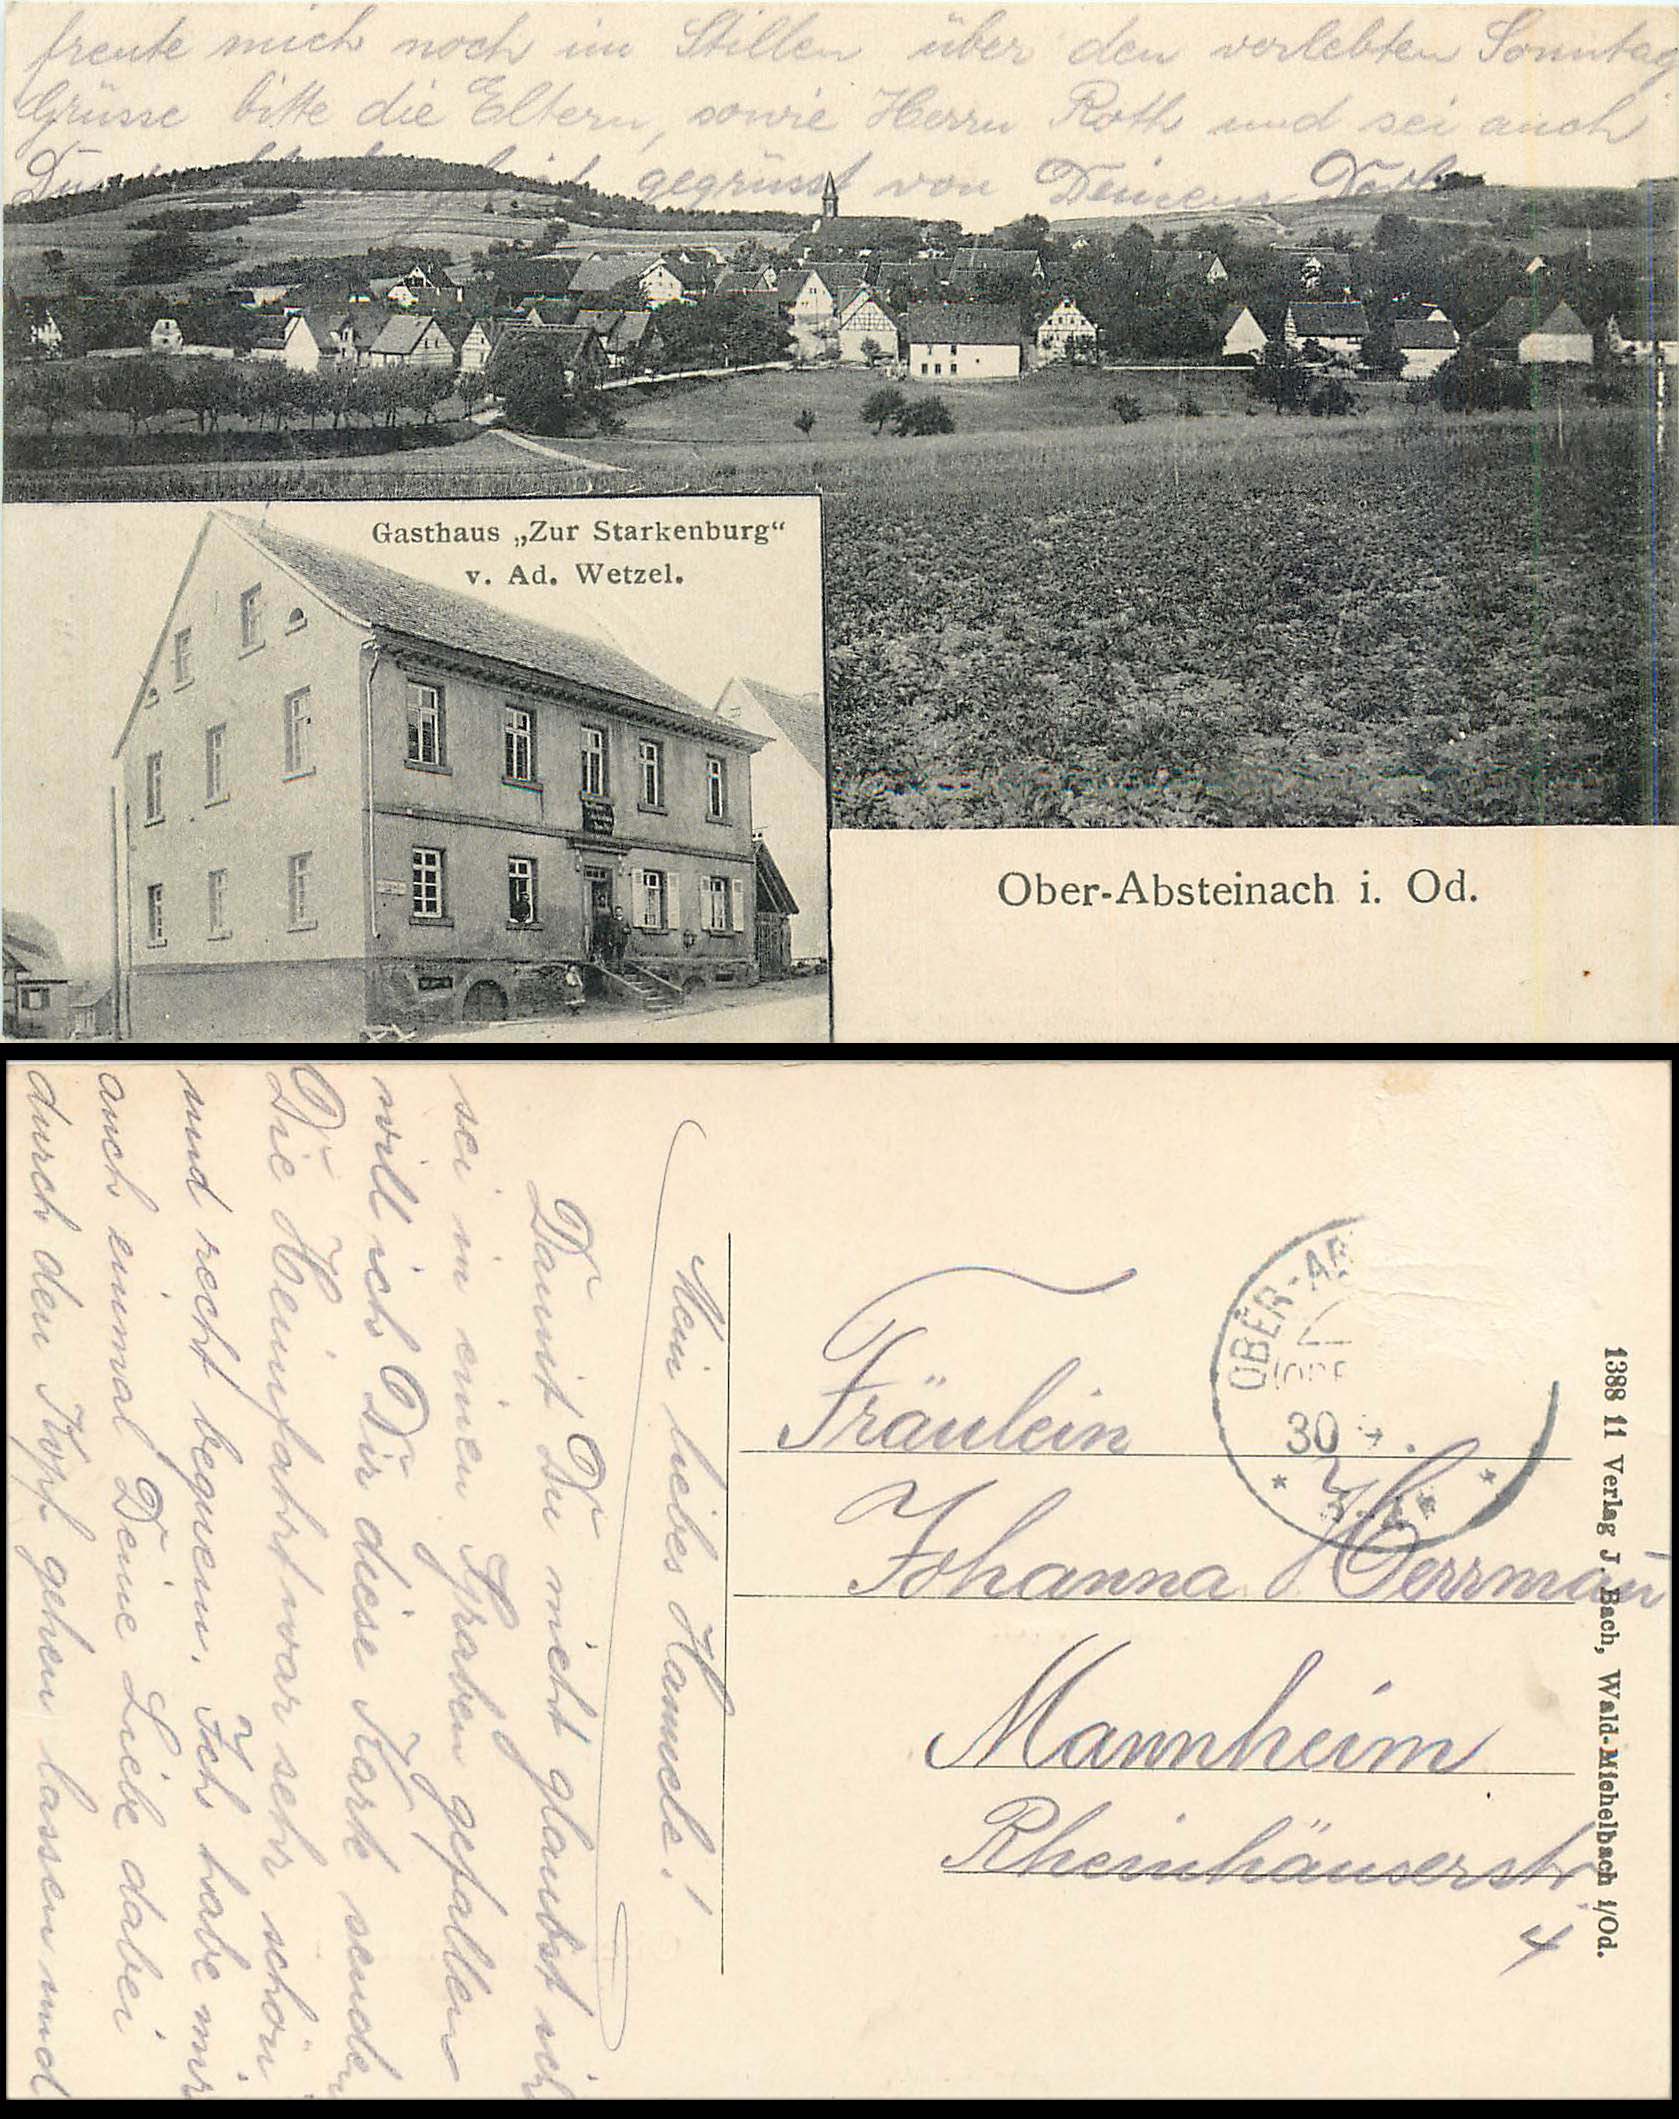 freute mich noch im Stillen über den verlebten Sonntag
Grüsse bitte die Eltern, sowie Herrn Roth und sei auch
Du gegrüsst von Deinem
Gasthaus „Zur Starkenburg“
v. Ad. Wetzel.
Ober-Absteinach i. Od.
Mein liebes Hannele!
Damit Du nicht glaubst ich
sei in einen Graben gefallen
will ich Dir diese Karte senden
Die Heimfahrt war sehr schön
und recht bequem. Ich habe mir
auch einmal Deine Liebe dabei
durch den Kopf gehen lassen und
OBER-AB
30
Fräulein
Johanna Herrmann
Mannheim
Rheinhäuserstr.
4
1388 11 Verlag J. Bach, Wald-Michelbach i/Od.